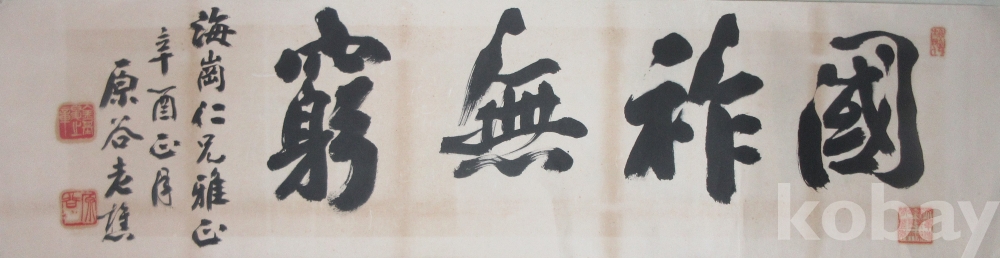 國祚無窮
海崗仁兄雅正
辛酉正月
原谷老樵
kobay